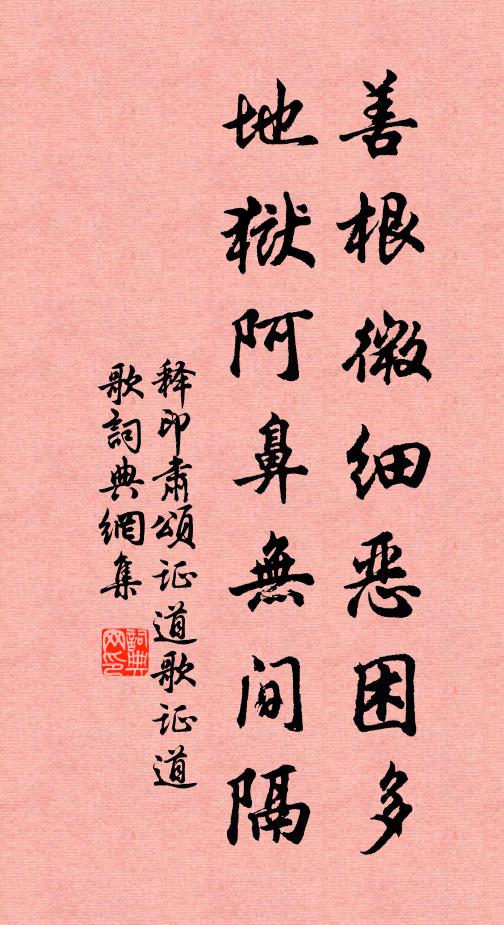 善根微细恶困多
地獄阿鼻無间隔
释印肃颂证道歌证道
歌詞典網集
詞典
网印